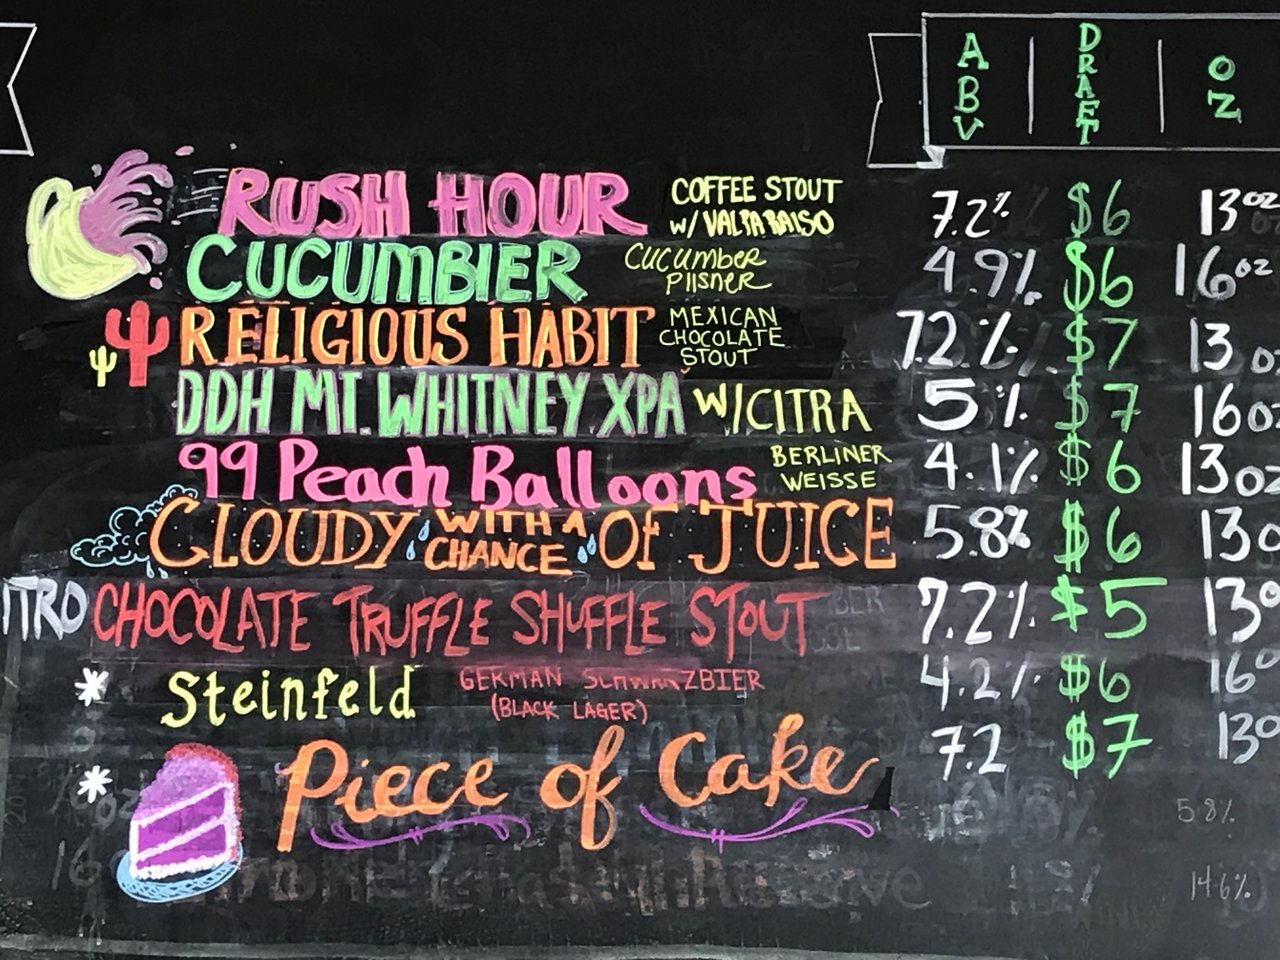 ABV | DRAFT | OZ
RUSH HOUR COFFEE STOUT W/ VALPARAISO 7.2% $6 13oz
CUCUMBIER CUCUMBER PILSNER 4.9% $6 16oz
RELIGIOUS HABIT MEXICAN CHOCOLATE STOUT 72% $7 13 oz
DDH MT. WHITNEY XPA W/CITRA 5% $7 16oz
99 Peach Balloons BERLINER WEISSE 4.1% $6 13oz
CLOUDY WITH A CHANCE OF JUICE 5.8% $6 13o
ITRO CHOCOLATE TRUFFLE SHUFFLE STOUT 7.2% $5 13o
* Steinfeld GERMAN SCHWARZBIER (BLACK LAGER) 4.2% $6 16o
* Piece of Cake 7.2 $7 13o
5.8%
14.6%